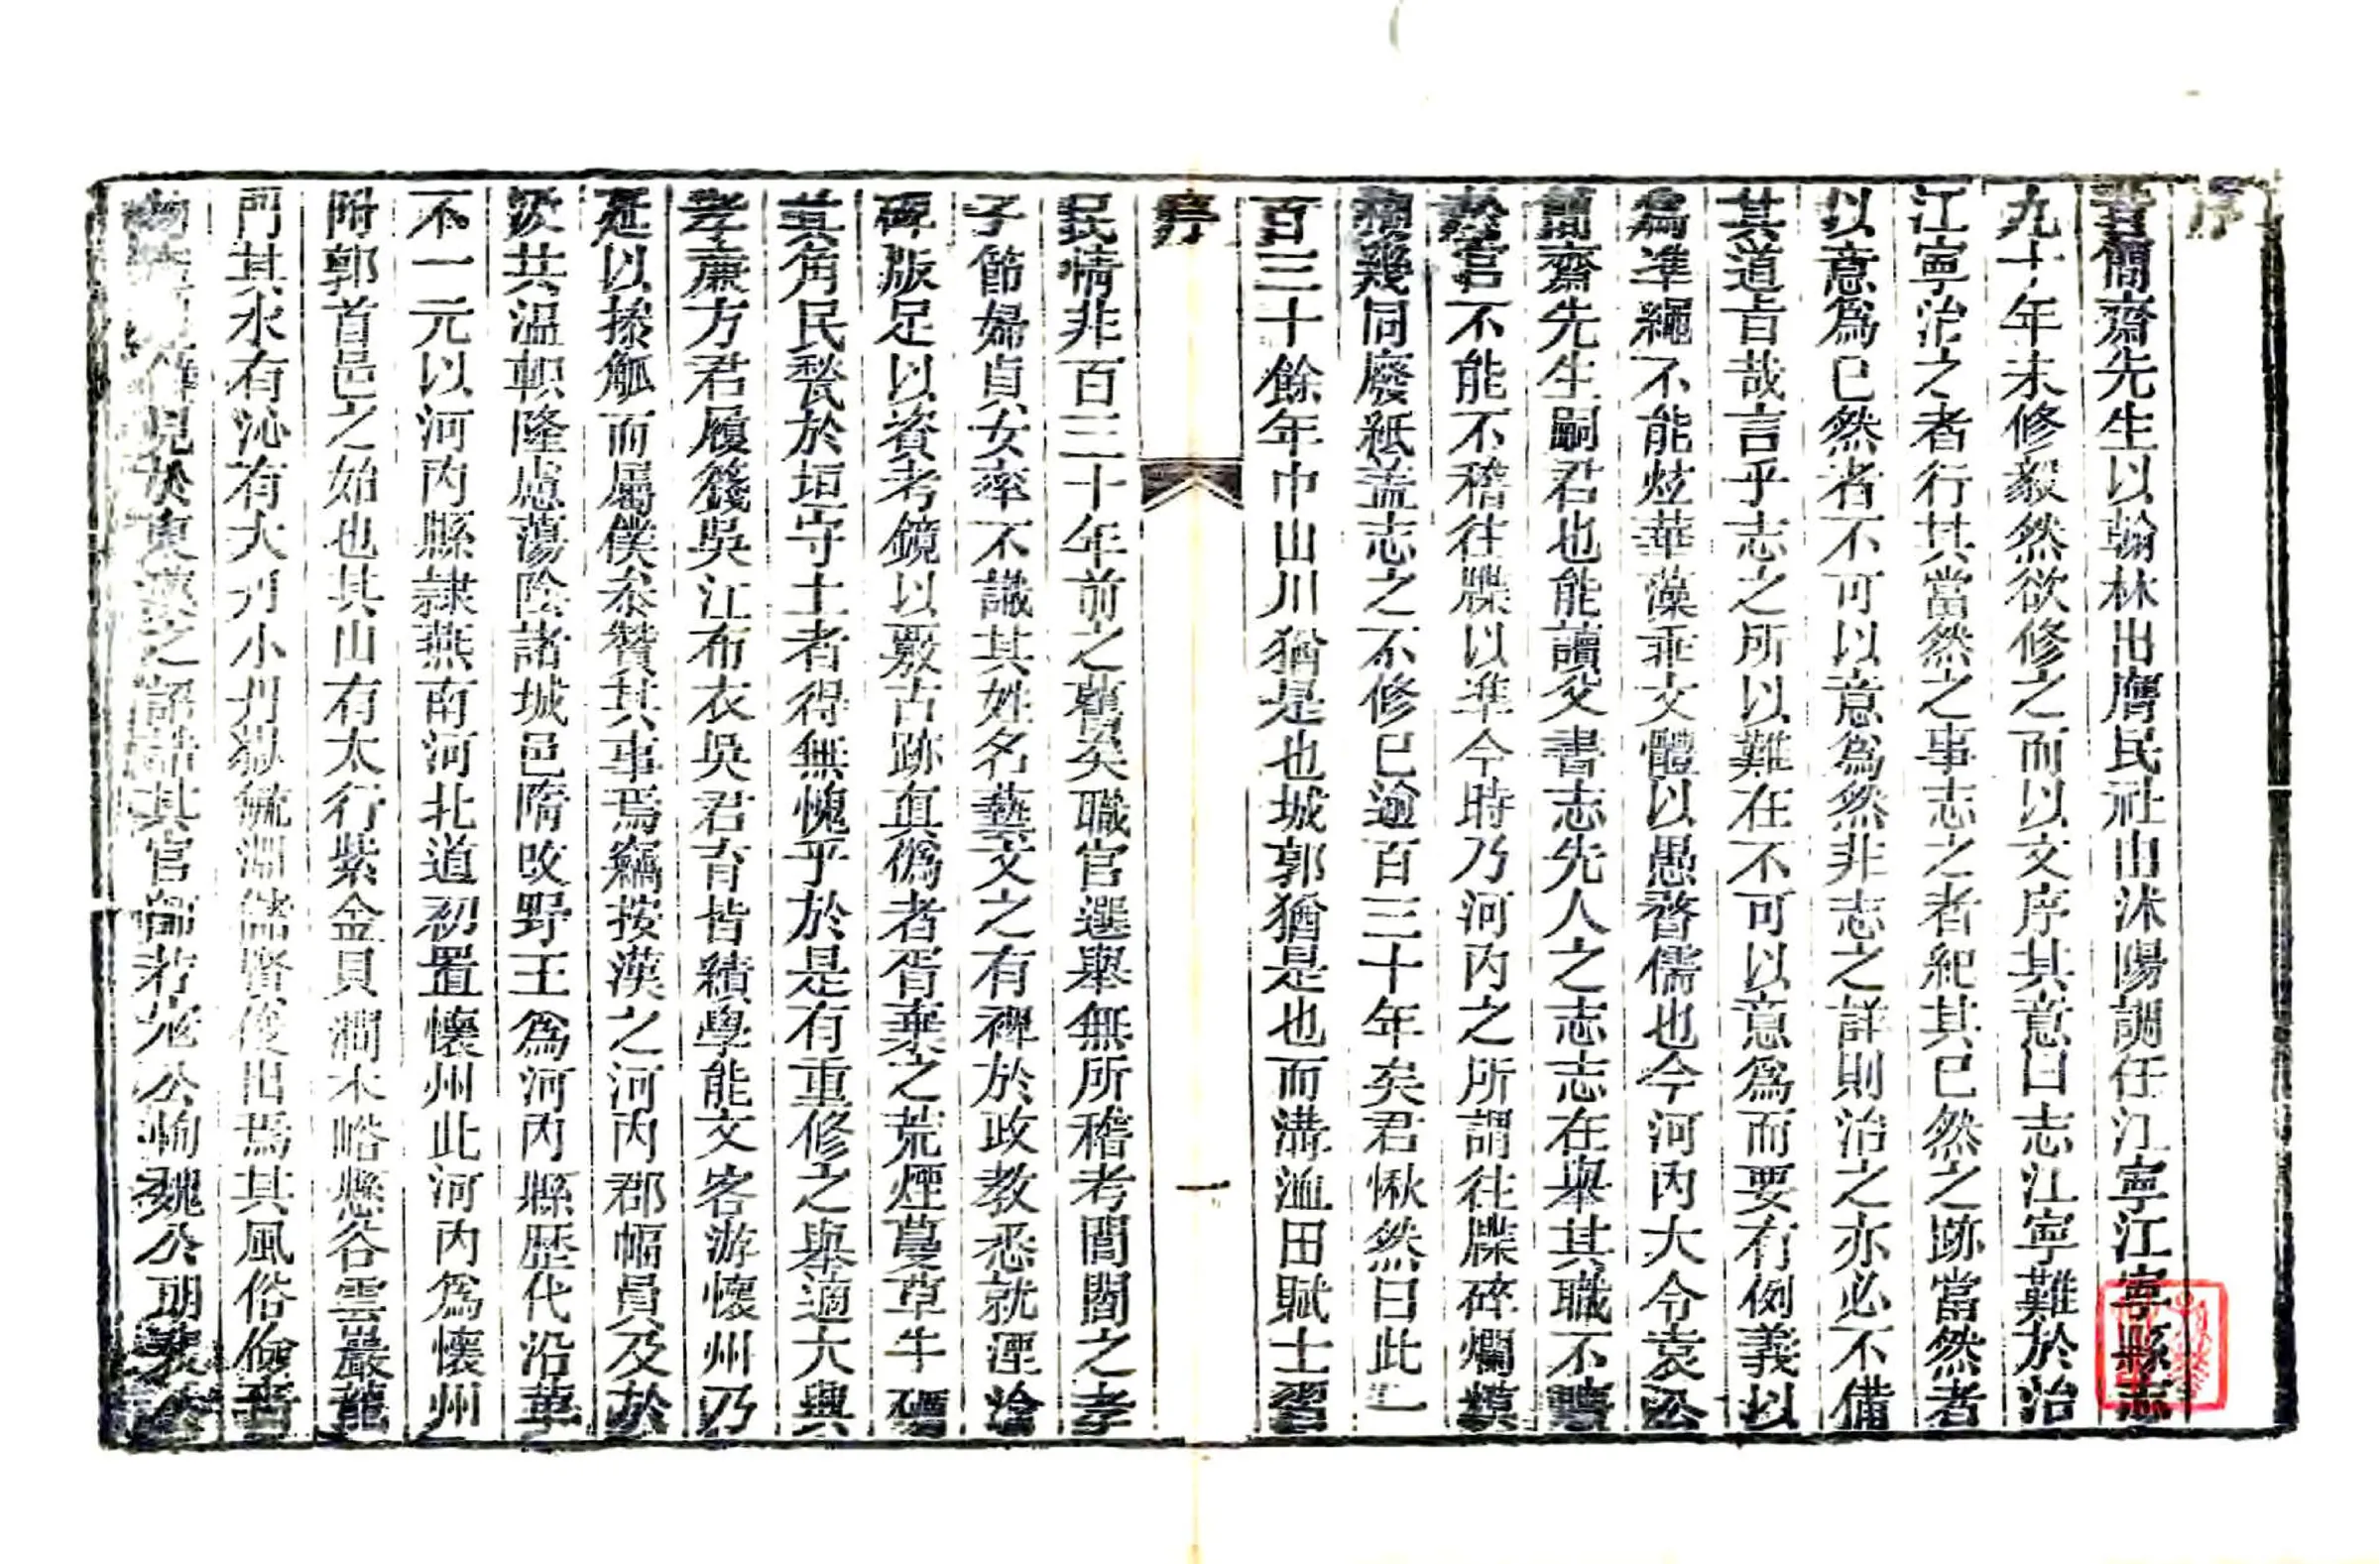 序
昔簡齋先生以翰林出膺民社由沭陽調任江寧江寧縣志
九十年未修毅然欲修之而以文序其意曰志江寧難於治
江寧治之者行其當然之事志之者紀其已然之跡當然者
以意為已然者不可以意為然非志之詳則治之亦必不備
其道旨哉言乎志之所以難在不可以意為而要有例義以
為準繩不能炫華藻乖文體以愚瞀儒也今河內大令袁公
簡齋先生嗣君也能讀父書志先人之志志在舉其職不曠
於官不能不稽往牒以準今時乃河內之所謂往牒碎爛模
糊幾同廢紙蓋志之不修已逾百三十年矣君愀然曰此
百三十餘年中山川猶是也城郭猶是也而溝洫田賦士習
序
一
民情非百三十年前之舊矣職官選舉無所稽考閭閻之孝
子節婦貞女率不識其姓名藝文之有裨於政教悉就湮淪
碑版足以資考鏡以覈古跡眞僞者胥棄之荒煙蔓草牛礪
其角民甃於垣守土者得無愧乎於是有重修之舉適大興
孝廉方君履籛吳江布衣吳君育皆績學能文客游懷州乃
延以操觚而屬僕叅贊其事焉竊按漢之河內郡幅員及於
汲共温軹隆慮蕩陰諸城邑隋改野王為河內縣歷代沿革
不一元以河內縣隸燕南河北道初置懷州此河內為懷州
附郭首邑之始也其山有太行紫金貝澗木峪懸谷雲巖龍
門其水有沁有大丹小丹嶽毓淵儲賢俊出焉其風俗儉嗇
見於東漢之詔 其官師若 公 魏公 裴公